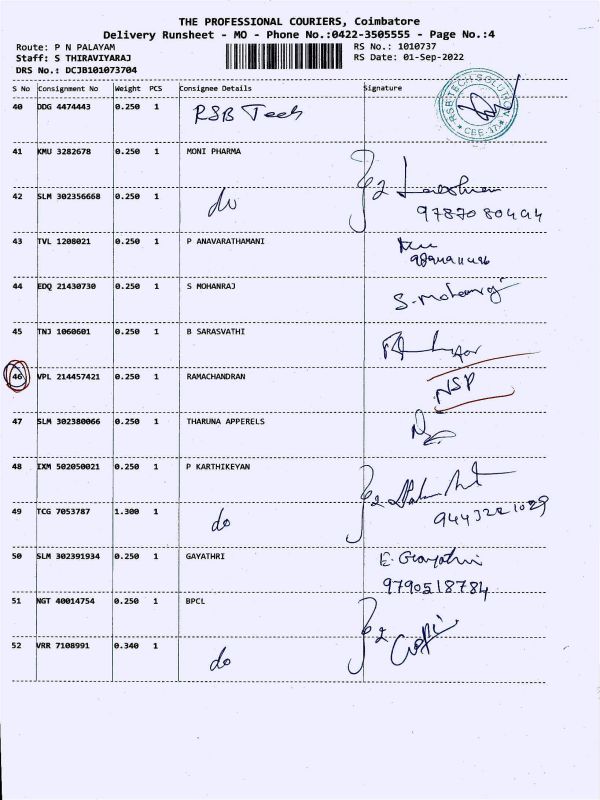 THE PROFESSIONAL COURIERS, Coimbatore
Delivery Runsheet - MO - Phone No.:0422-3505555 - Page No.:4
Route: P N PALAYAM RS No.: 1010737
Staff: S THIRAVIYARAJ RS Date: 01-Sep-2022
DRS No.: DCJB101073704
S No Consignment No Weight PCS Consignee Details Signature
40 DDG 4474443 0.250 1 RSB Tech
RSB TECH SOLUTION
CBE-37
41 KMU 3282678 0.250 1 MONI PHARMA
42 SLM 302356668 0.250 1 do 2
9787080494
43 TVL 1208021 0.250 1 P ANAVARATHAMANI
44 EDQ 21430730 0.250 1 S MOHANRAJ S. Mohanraj
45 TNJ 1060601 0.250 1 B SARASVATHI
46 VPL 214457421 0.250 1 RAMACHANDRAN NSP
47 SLM 302380066 0.250 1 THARUNA APPERELS
48 IXM 502050021 0.250 1 P KARTHIKEYAN 2
49 TCG 7053787 1.300 1 do 9443221029
50 SLM 302391934 0.250 1 GAYATHRI E. Gayathri
9790518784
51 NGT 40014754 0.250 1 BPCL 2 Gopi
52 VRR 7108991 0.340 1 do